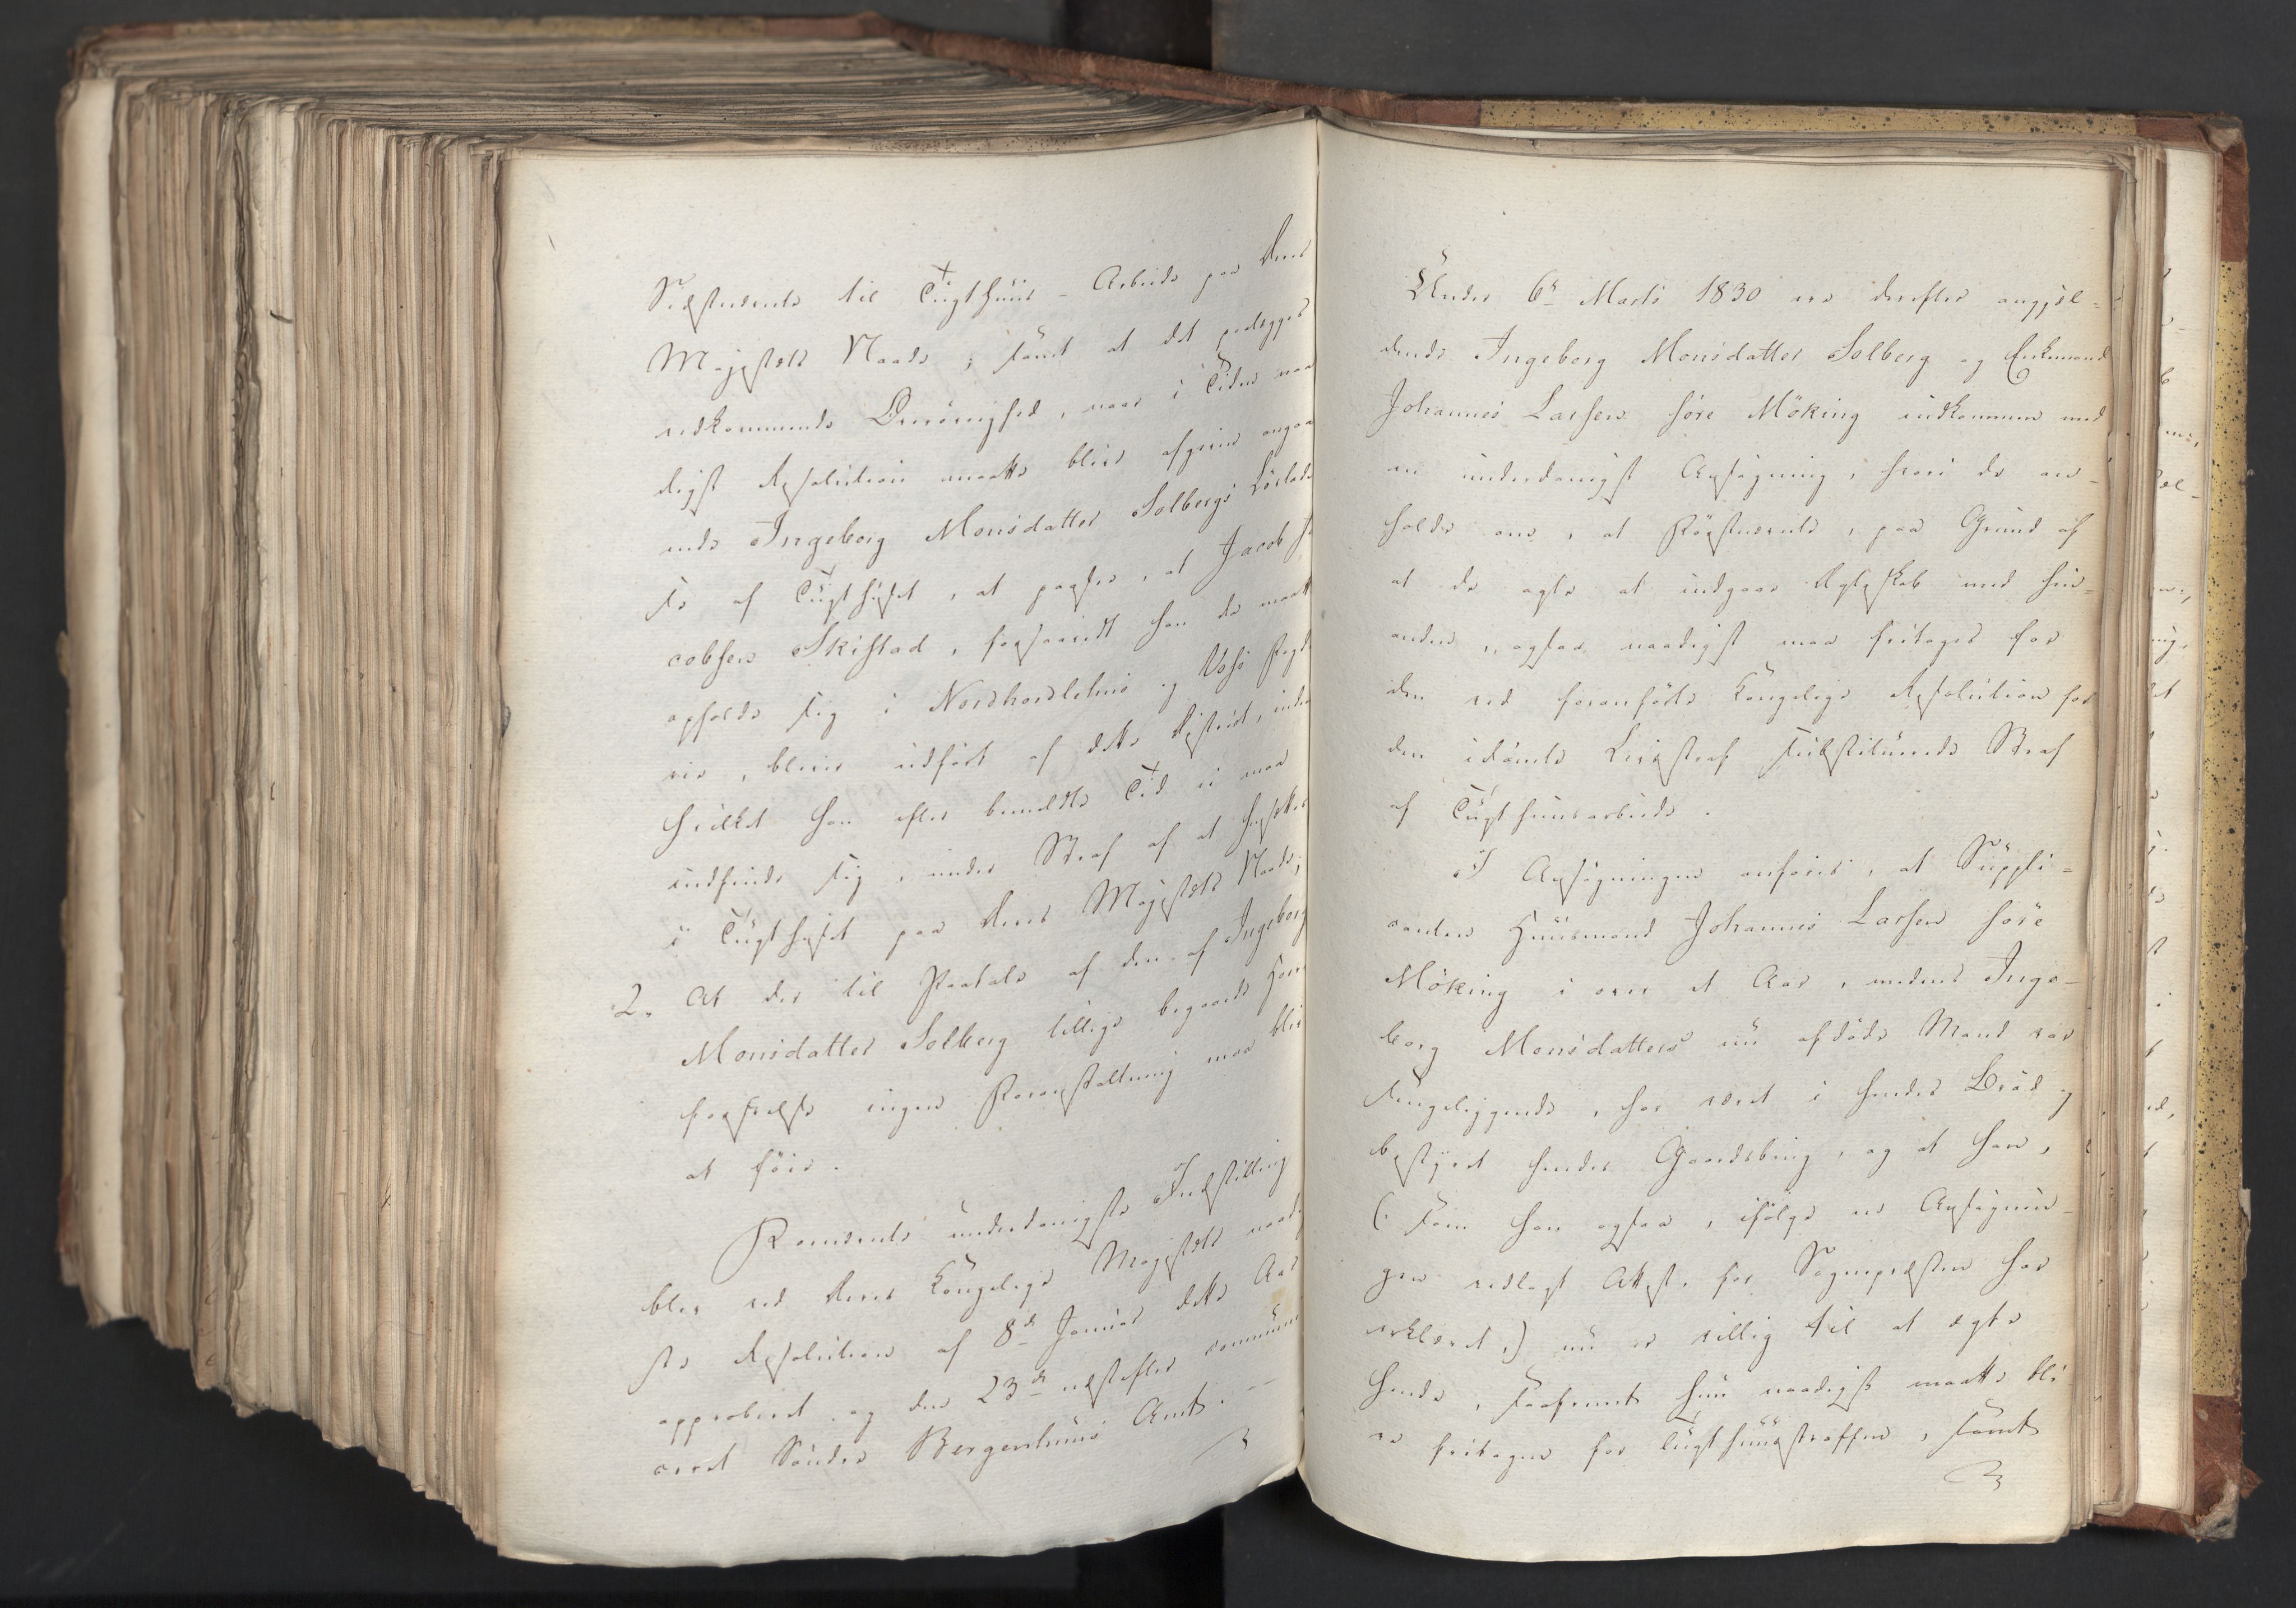 Førstnævnte til Tugthuus-Arbeide paa Deres
Majestæts Naade; samt at det paalægges
vedkommende Øvrighed, naar i Tiden naa
digst Resolution maatte blive afgiven angaa
ende Ingeborg Monsdatter Solbergs Løslade
se af Tugthuset, at paasee, at Jacob Ja
cobsen Skistad, forsaavidt han da maatte
opholde sig i Nordhordlehns og Voss Fogde
rie, bliver udført af dette District, inden
hvilket han efter bemeldte Tid ei maa
indfinde sig, under Straf af at hensættes
i Tugthuset paa Deres Majestæts Naade;
2. At der til Paatale af den af Ingeborg
Monsdatter Solberg tillige begaaede Hore
forseelse ingen Foranstaltning maa blive
at føie.
Foranførte underdanigste Indstilling
blev ved Deres Kongelige Majestæts naadig
ste Resolution af 8de Januar dette Aar
approberet og den 23de næstefter commini
ceret Søndre Bergenhuus Amt.
Under 6te Marts 1830 ere derefter angjæl-
dende Ingeborg Monsdatter Solberg og Enkemand
Johannes Larsen søre Møking indkomne med
en underdanigst Ansøgning, hvori de an-
holde om, at Førstnævnte, paa Grund af
at de agte at indgaae Ægteskab med hin-
anden, ogsaa naadigst maa fritages for
den ved foranførte Kongelige Resolution for
den idømte Livsstraf substituerede Straf
af Tugthuusarbeide.
I Ansøgningen anføres, at Suppli-
canten Huusmand Johannes Larsen søre
Møking i over et Aar, medens Inge-
borg Monsdatters nu afdøde Mand var
sengeliggende, har været i hendes Brød og
bestyret hendes Gaardsbrug, og at han,
(: som han ogsaa, ifølge en Ansøgnin-
gen vedlagt Attest, for Sognepræsten har
erklæret,) nu er villig til at ægte
hende, saafremt hun naadigst maatte bli-
ve fritagen for Tugthuusstraffen, samt